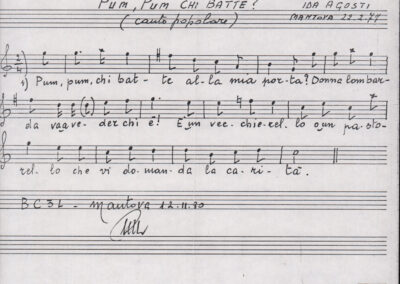 PUM, PUM CHI BATTE?
IDA AGOSTI
(canto popolare)
MANTOVA 22.2.77
1) Pum, pum, chi bat- te al-la mia por-ta? Donna lombar-
da va a ve- der chi è! È un vec-chie-rel-lo o un pa-sto-
rel-lo che vi do-man-da la ca-ri-tà.
BC3L - Mantova 12.11.80